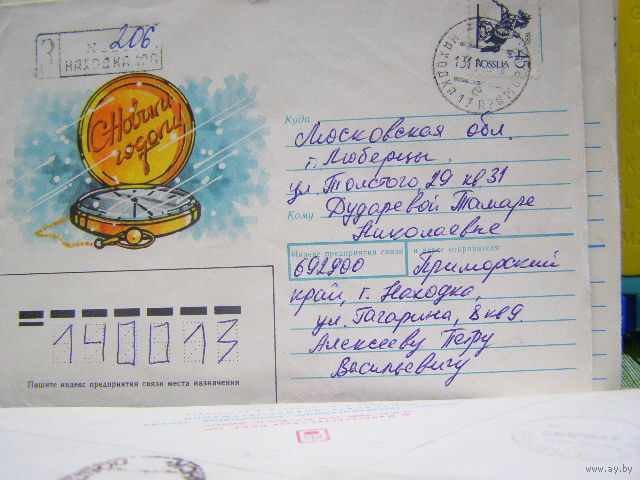 З N 206
НАХОДКА 106
С Новым
годом!
РОССИЯ
ROSSIJA
45
НАХОДКА
ПРИМ
131
Куда Московская обл.
г. Люберцы.
ул. Толстого, 29 кв. 31
Кому Дударевой Тамаре
Николаевне
Индекс предприятия связи и адрес отправителя
692900 Приморский
край, г. Находка,
ул. Гагарина, 8 кв 9.
Алексееву Петру
Васильевичу
140013
Пишите индекс предприятия связи места назначения
www.ay.by